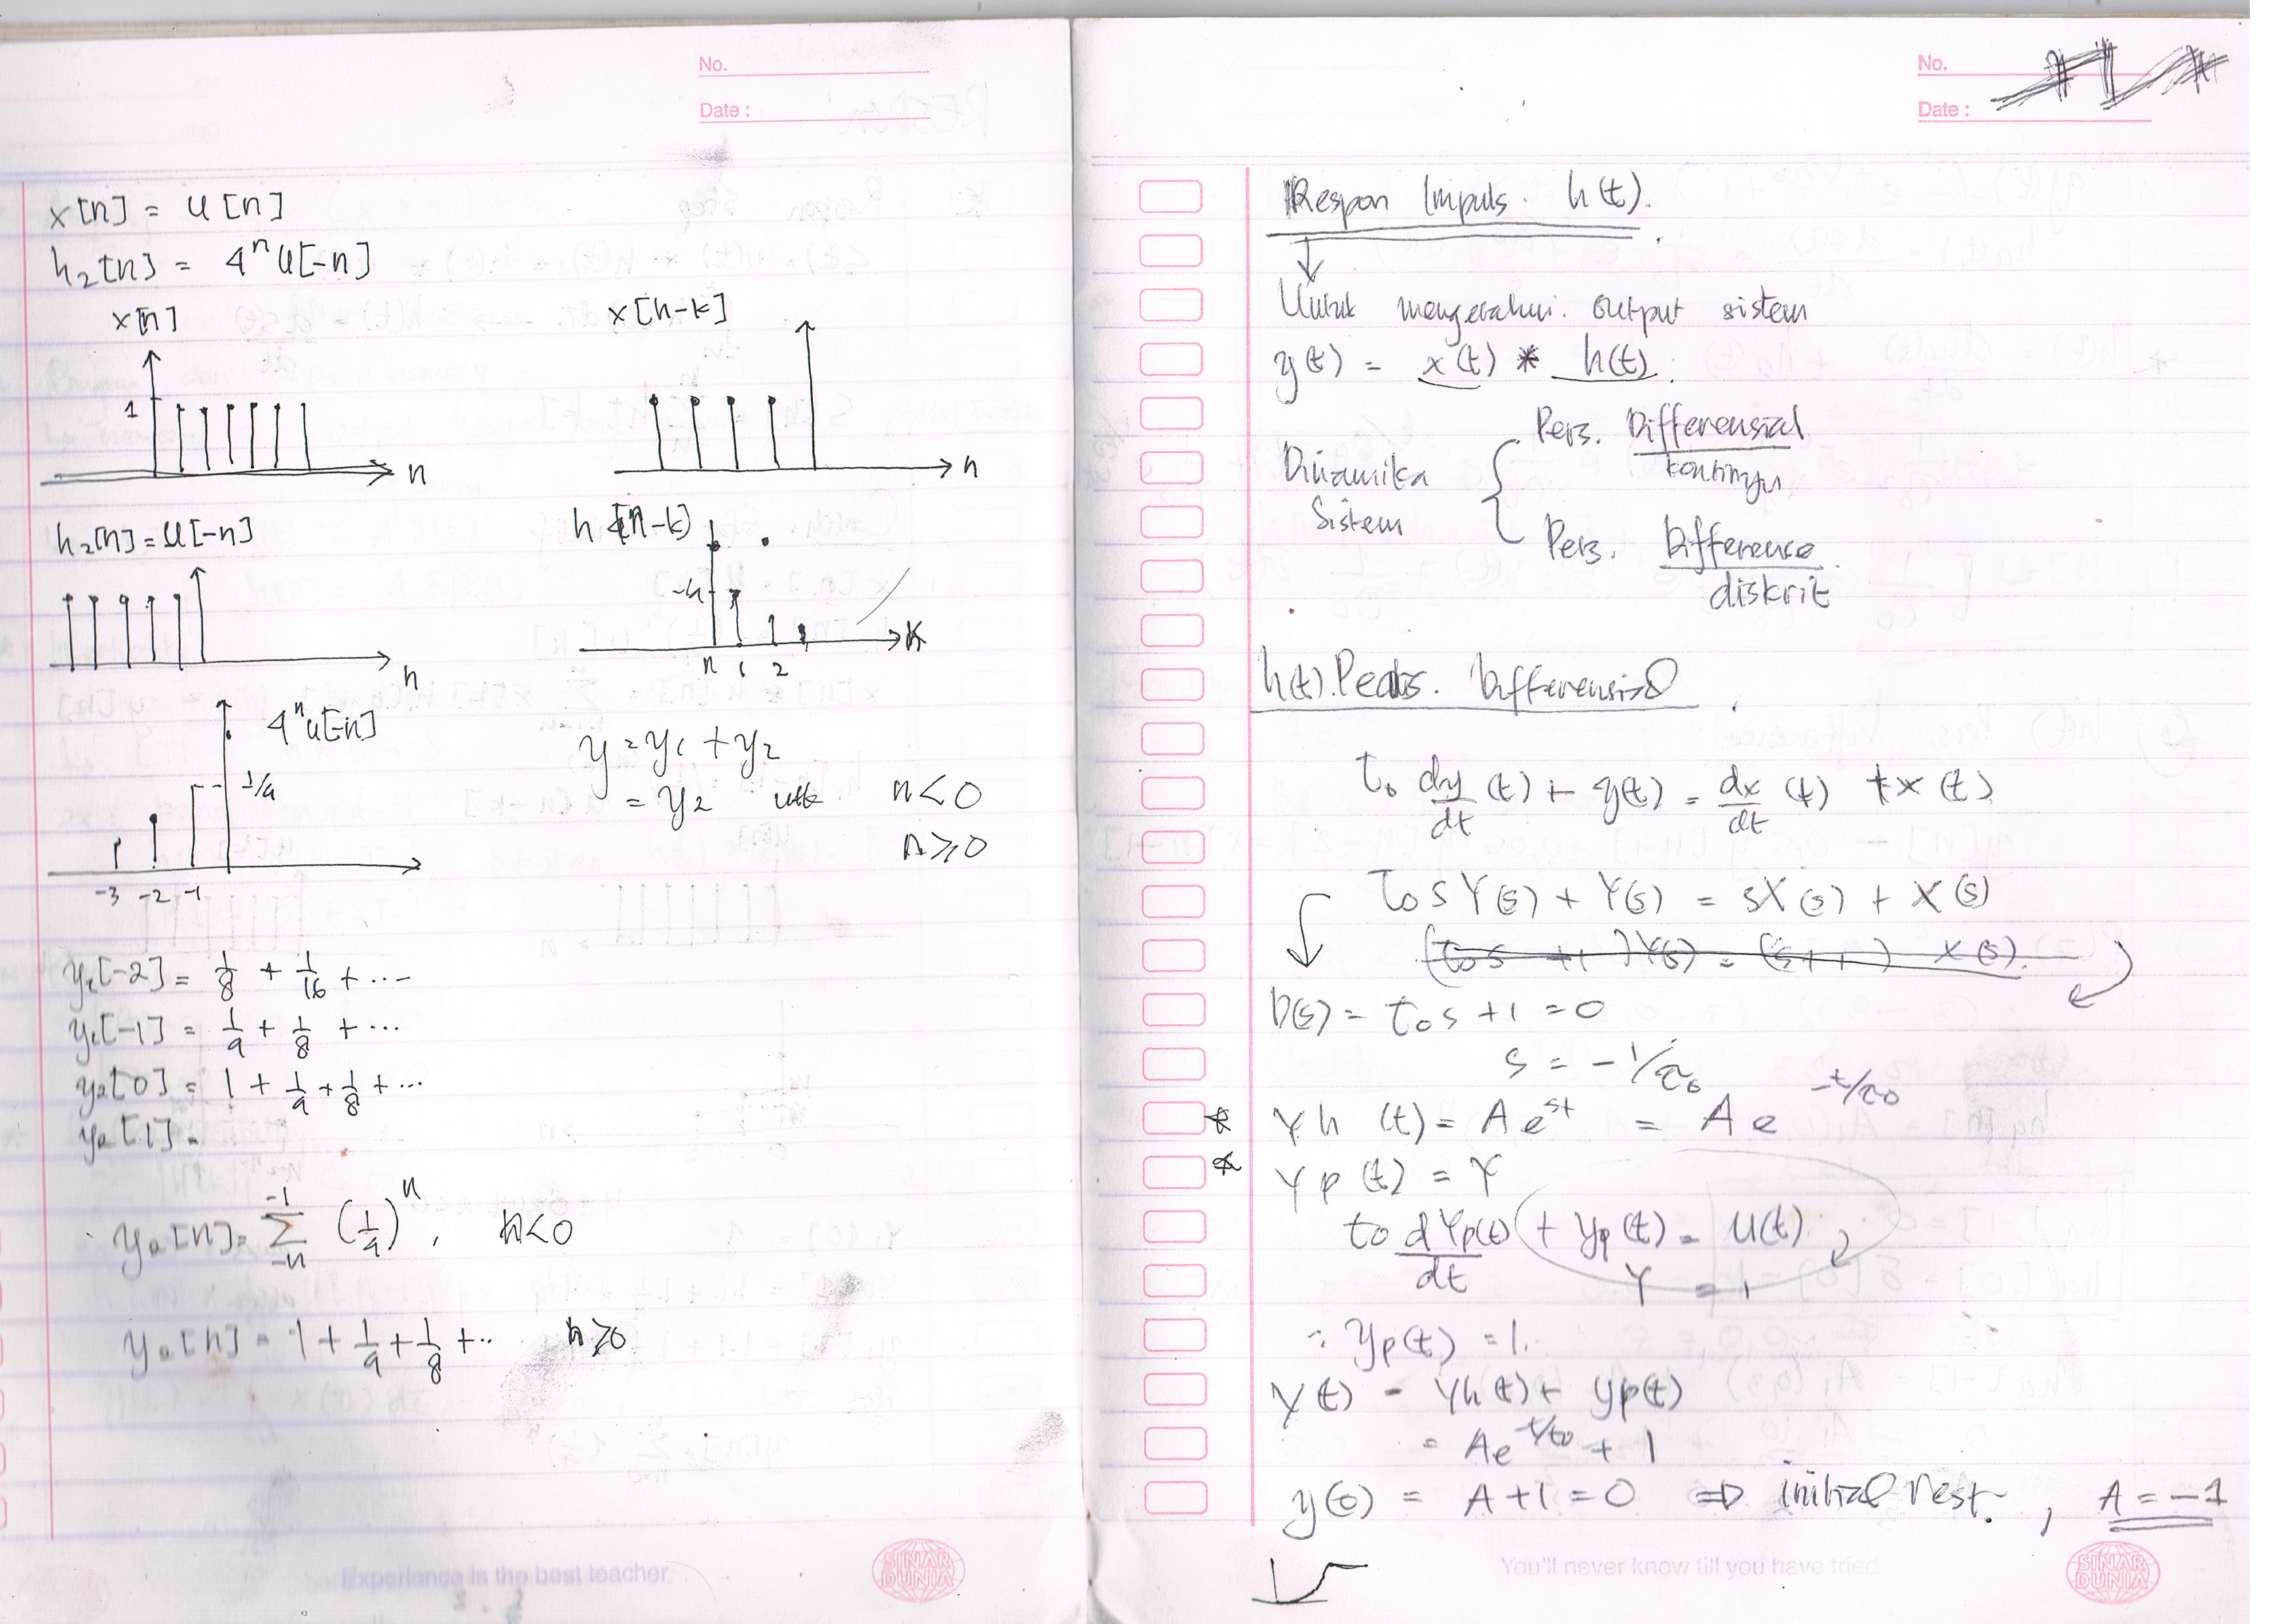 No.
Date :
x[n] = u[n]
h₂[n] = 4ⁿ u[-n]
x[n]
x[n-k]
1
n
n
h₂[n] = u[-n]
h [n-k]
n
n 1 2
k
4ⁿ u[-n]
1/4
-3 -2 -1
y = y₁ + y₂
= y₂ utk n < 0
n ≥ 0
y₂[-2] = 1/8 + 1/16 + ...
y₂[-1] = 1/4 + 1/8 + ...
y₂[0] = 1 + 1/4 + 1/8 + ...
y₂[1] =
y₂[n] = Σ_{-n}^{-1} (1/4)ⁿ , n < 0
y₂[n] = 1 + 1/4 + 1/8 + .. n ≥ 0
Experience is the best teacher
SINAR DUNIA
No.
Date :
Respon Impuls. h(t).
Untuk mengetahui output sistem
y(t) = x(t) * h(t).
Dinamika Sistem
Pers. Differensial
kontinyu
Pers. Difference
diskrit
h(t). Pers. Differensial
τ₀ dy/dt (t) + y(t) = dx/dt (t) + x(t)
τ₀ s Y(s) + Y(s) = sX(s) + X(s)
(τ₀s + 1) Y(s) = (s+1) X(s).
D(s) = τ₀s + 1 = 0
s = -1/τ₀
* Yh (t) = A e^{st} = A e^{-t/τ₀}
* Yp (t) = Y
τ₀ dYp(t)/dt + yp(t) = u(t)
Y = 1
∴ yp(t) = 1.
y(t) = yh(t) + yp(t)
= Ae^{-t/τ₀} + 1
y(0) = A + 1 = 0 ⇒ initial rest. , A = -1
You'll never know till you have tried
SINAR DUNIA